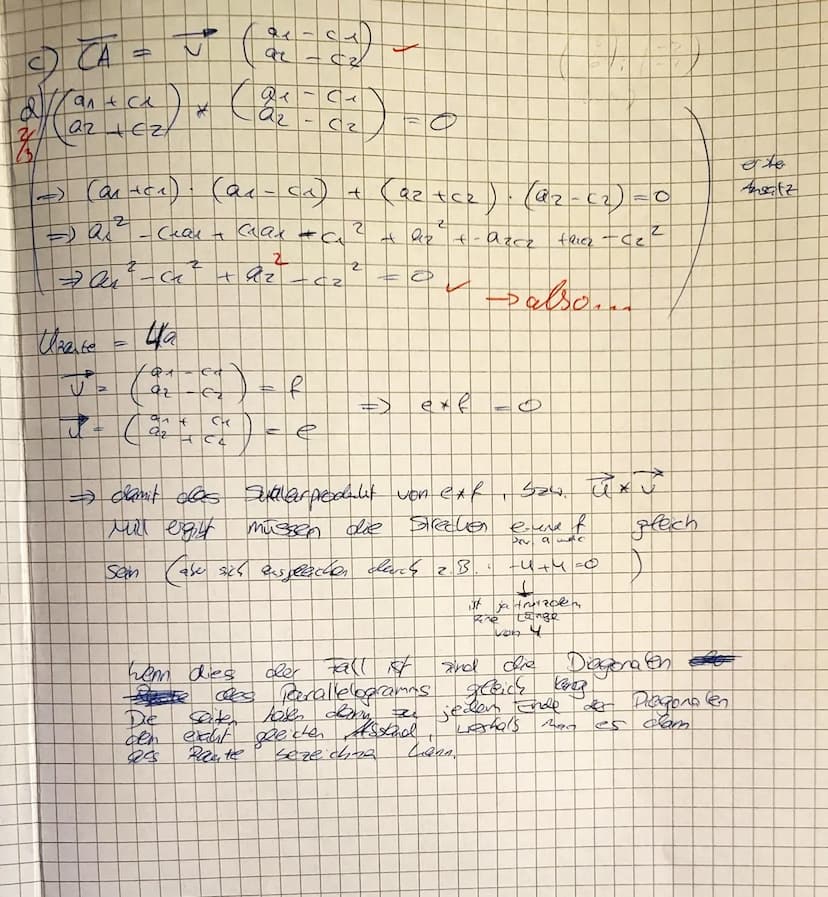 c) CA = v (a1 - c1
a2 - c2) ✓
d) (a1 + c1
a2 + c2) * (a1 - c1
a2 - c2) = 0
2/3
=> (a1 + c1) · (a1 - c1) + (a2 + c2) · (a2 - c2) = 0
erster
Ansatz
=> a1² - c1a1 + c1a1 - c1² + a2² + - a2c2 + a2c2 - c2²
=> a1² - c1² + a2² - c2² = 0 ✓ → also...
URaute = 4a
v = (a1 - c1
a2 - c2) = f
=> e * f = 0
u = (a1 + c1
a2 + c2) = e
=> damit das Skalarprodukt von e*f, bzw. u * v
Null ergibt müssen die Strecken e und f gleich
sein (aber sich ausgleichen durch z.B. -4+4=0)
ist ja trotzdem
eine Länge
von 4
Wenn dies der Fall ist sind die Diagonalen
des Parallelogramms gleich lang
Die Seiten haben dann zu jedem Ende der Diagonalen
den exakt gleichen Abstand, weshalb man es dann
als Raute bezeichnen kann.